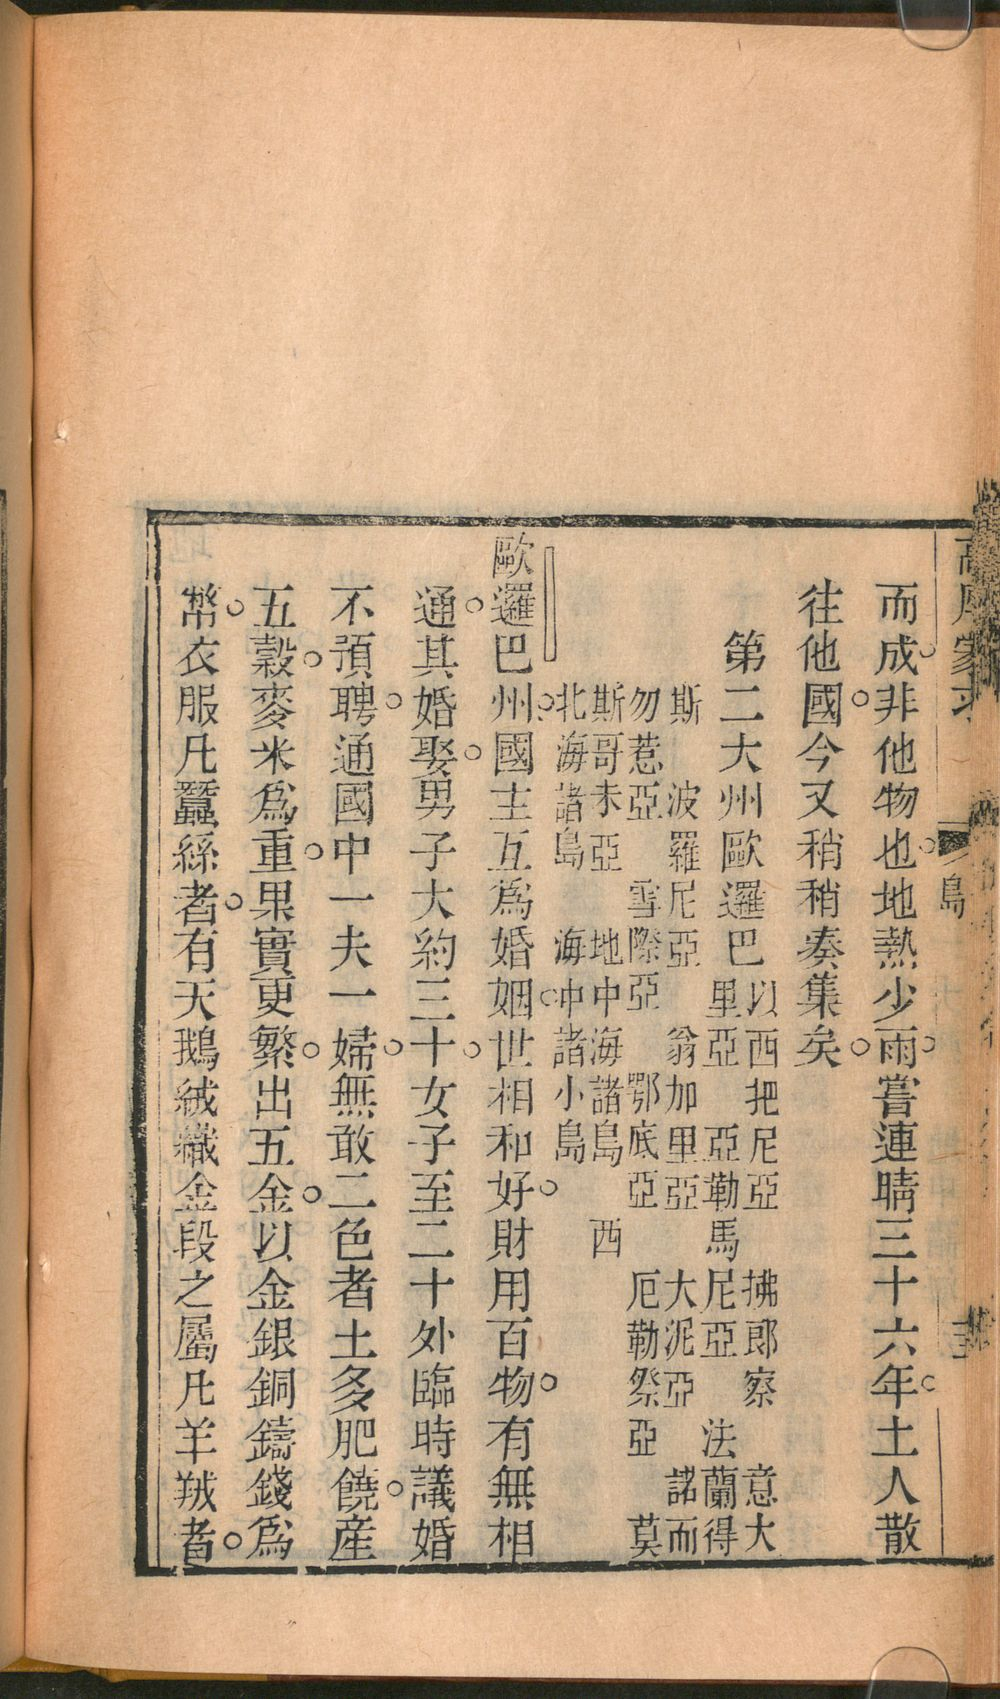 島
而成非他物也地熱少雨嘗連晴三十六年土人散
往他國今又稍稍奏集矣
第二大州歐邏巴
以西把尼亞 拂郎察 意大
里亞 亞勒馬尼亞 法蘭得
斯 波羅尼亞 翁加里亞 大泥亞 諾而
勿惹亞 雪際亞 鄂底亞 厄勒祭亞 莫
斯哥未亞 地中海諸島 西
北海諸島 海中諸小島
歐邏巴州國主互爲婚姻世相和好財用百物有無相
通其婚娶男子大約三十女子至二十外臨時議婚
不預聘通國中一夫一婦無敢二色者土多肥饒產
五穀麥米爲重果實更繁出五金以金銀銅鑄錢爲
幣衣服凡蠶絲者有天鵝絨織金段之屬凡羊羢者